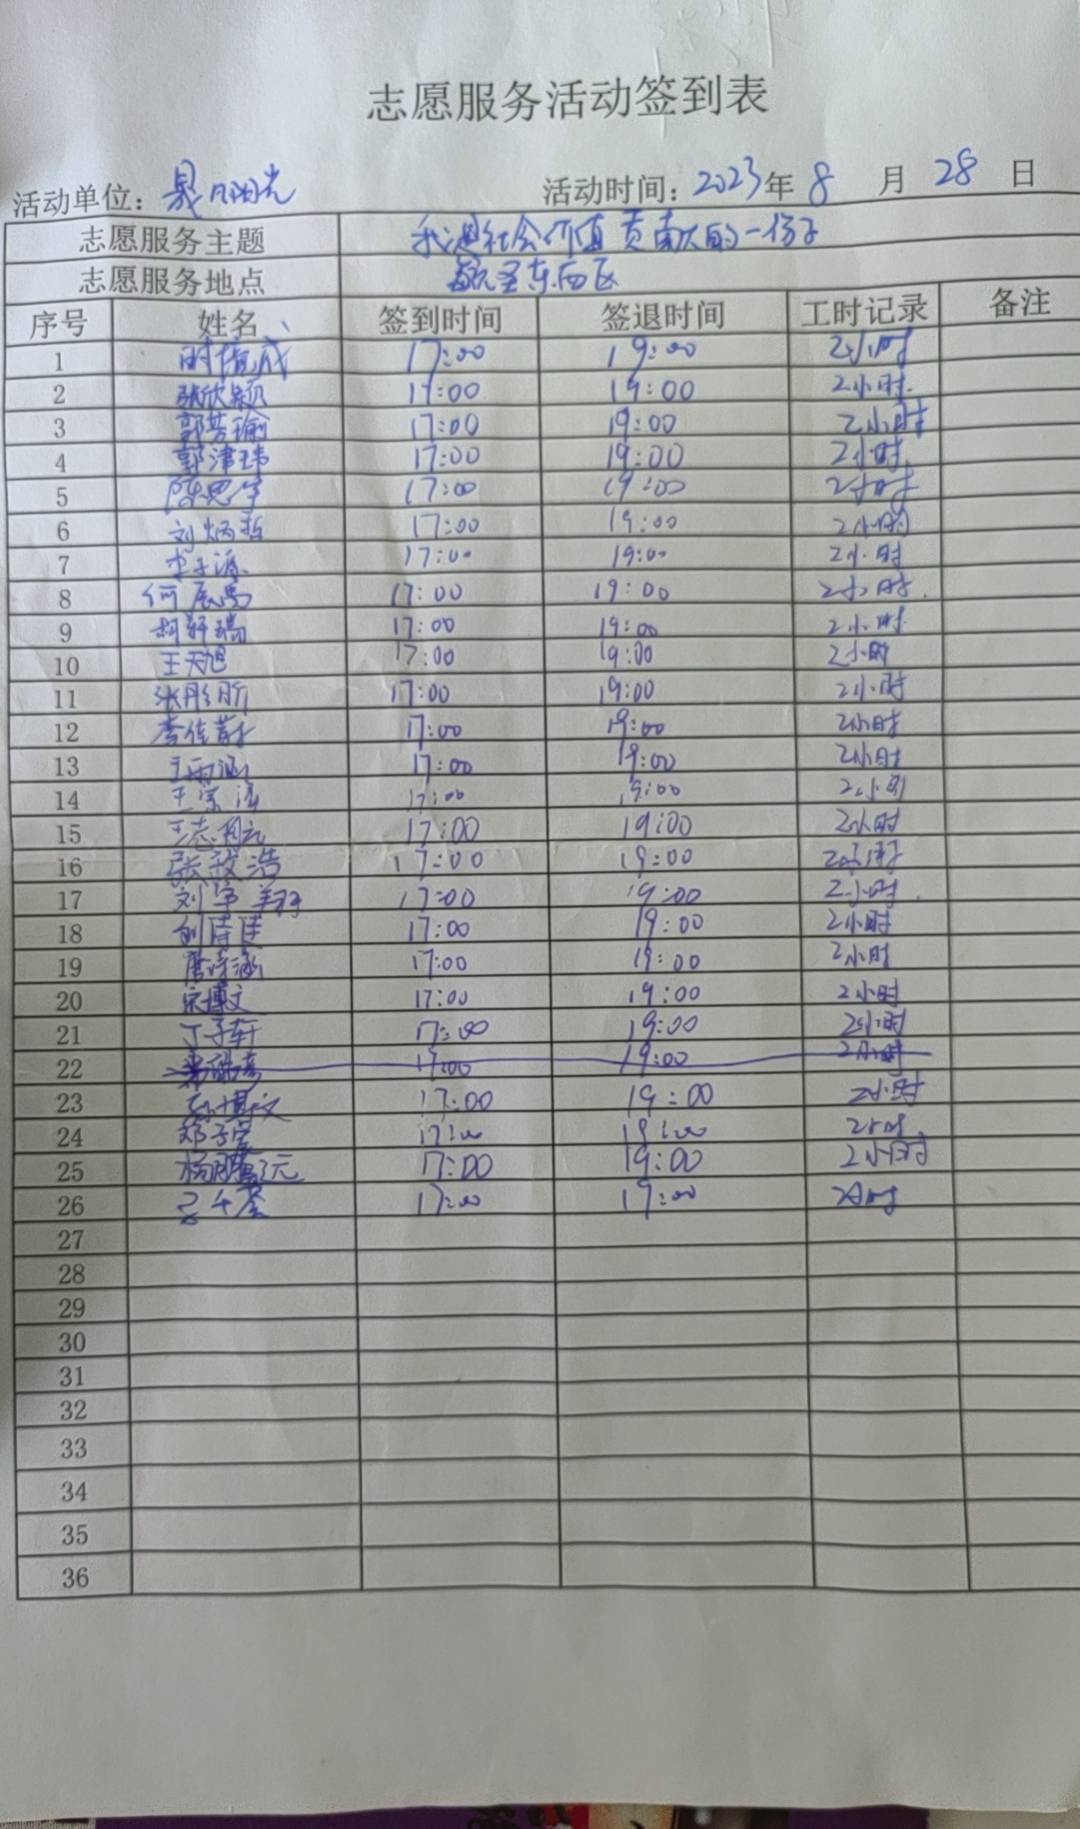 志愿服务活动签到表
活动单位: 晟阳光 活动时间: 2023年 8 月 28 日
志愿服务主题 我是社会价值贡献大的一份子
志愿服务地点 东西区
序号 姓名 签到时间 签退时间 工时记录 备注
1 17:00 19:00 2小时
2 张欣颖 17:00 19:00 2小时
3 郭芳瑜 17:00 19:00 2小时
4 郭津玮 17:00 19:00 2小时
5 陈思宇 17:00 19:00 2小时
6 刘炳哲 17:00 19:00 2小时
7 李子源 17:00 19:00 2小时
8 何展 17:00 19:00 2小时
9 柯轩瑞 17:00 19:00 2小时
10 王天旭 17:00 19:00 2小时
11 张彤昕 17:00 19:00 2小时
12 李佳 17:00 19:00 2小时
13 王雨涵 17:00 19:00 2小时
14 王 17:00 19:00 2小时
15 王志 17:00 19:00 2小时
16 张毅浩 17:00 19:00 2小时
17 刘宇翔 17:00 19:00 2小时
18 刘诗佳 17:00 19:00 2小时
19 唐诗涵 17:00 19:00 2小时
20 宋博文 17:00 19:00 2小时
21 丁子轩 17:00 19:00 2小时
22 17:00 19:00 2小时
23 孙博文 17:00 19:00 2小时
24 邓子宸 17:00 19:00 2小时
25 杨 元 17:00 19:00 2小时
26 17:00 19:00 2小时
27
28
29
30
31
32
33
34
35
36